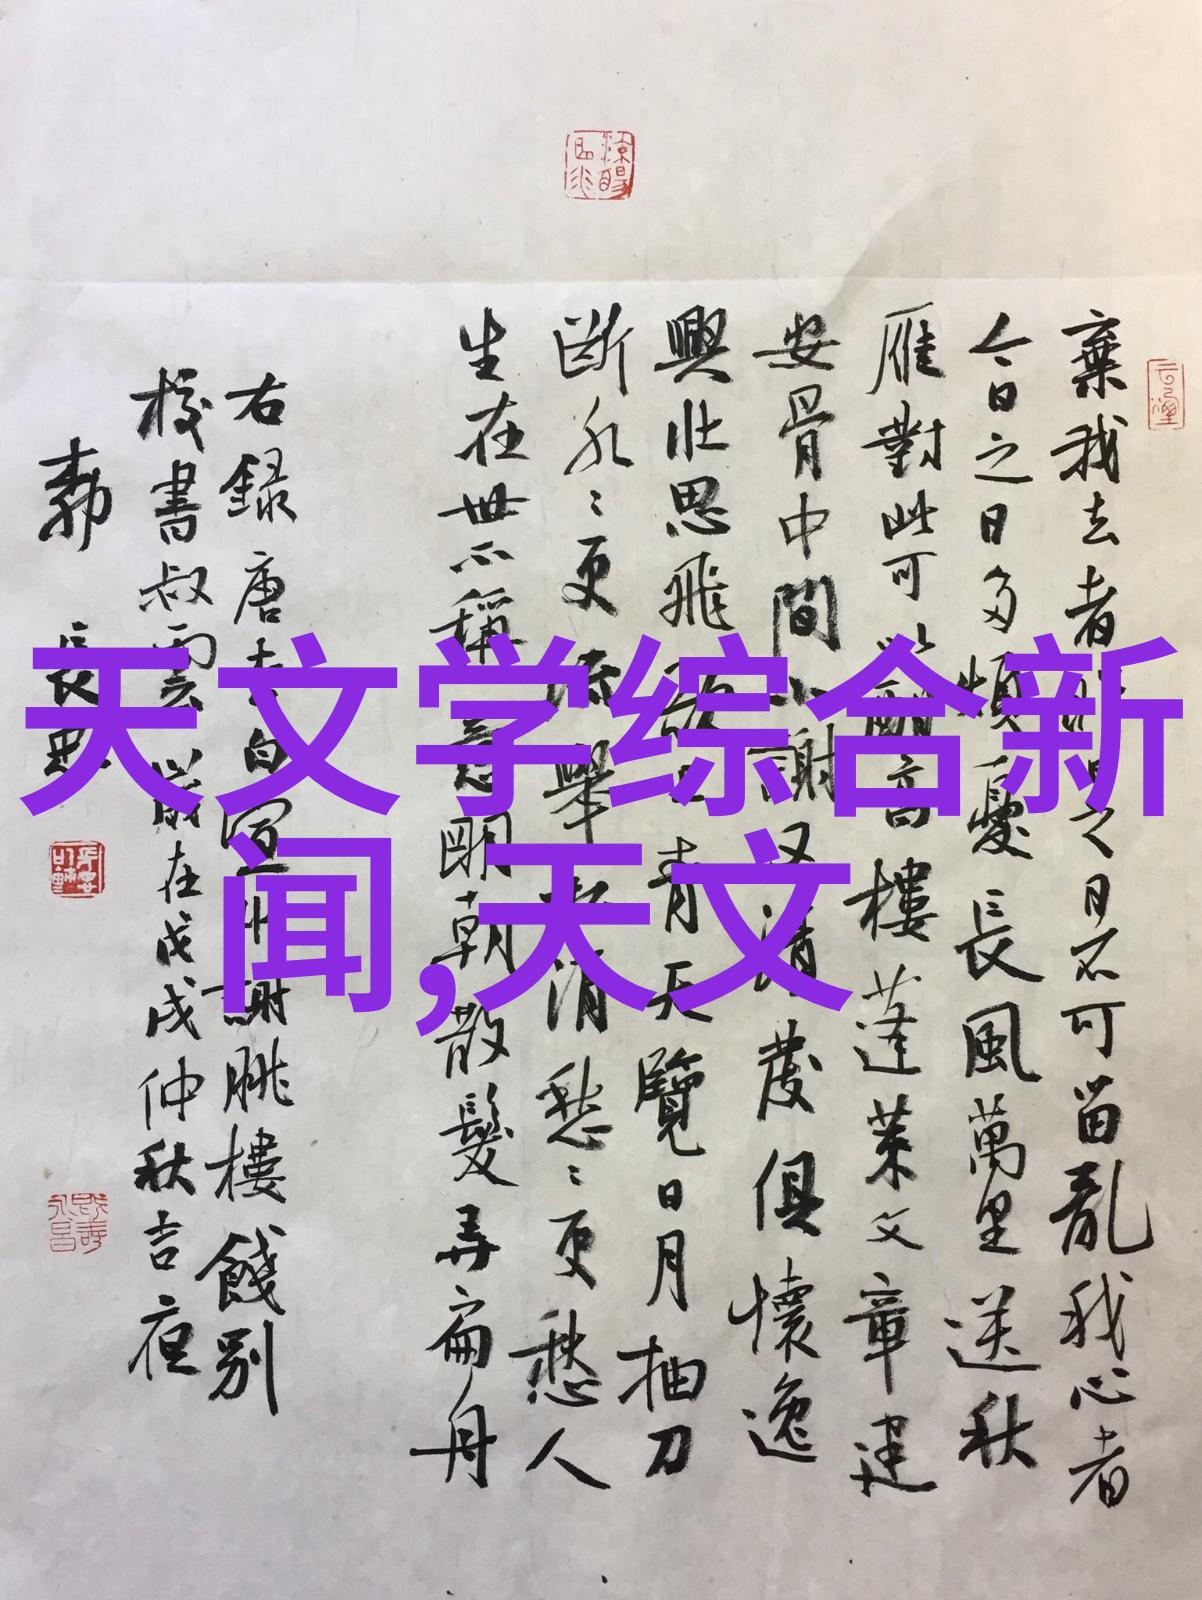 天文学综合新
闻,天文
棄我去者昨日之日不可留亂我心者
今日之日多煩憂長風萬里送秋
雁對此可以酣高樓蓬萊文章建
安骨中間小謝又清發俱懷逸
興壯思飛欲上青天覽日月抽刀
斷水〻更流舉杯消愁〻更愁人
生在世不稱意明朝散髮弄扁舟
右録唐李白宣州謝朓樓餞別
校書叔雲歲在戊戌仲秋吉夜